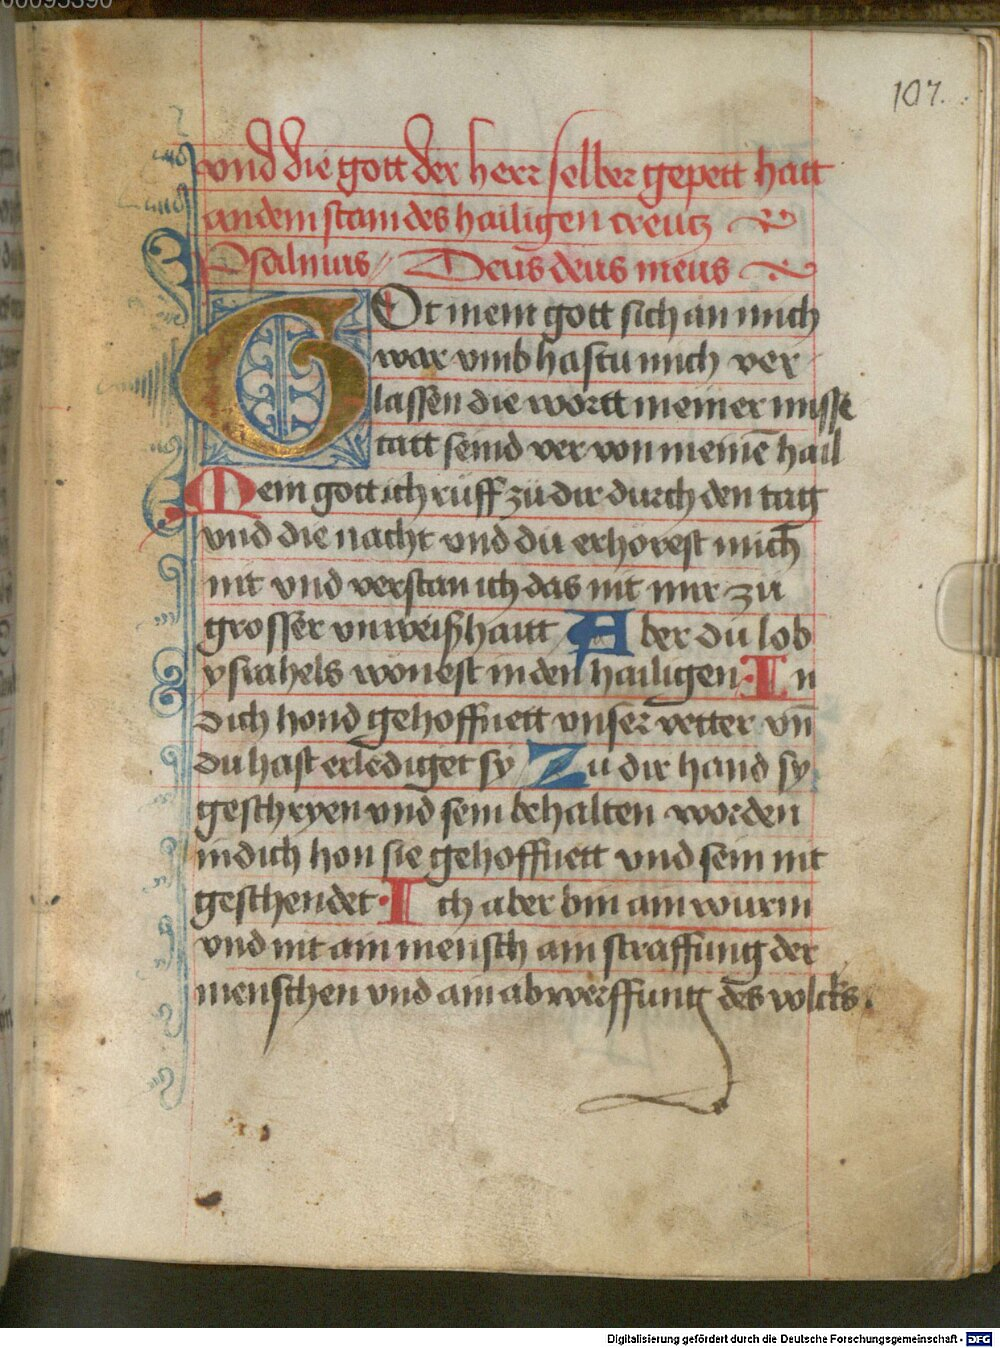 00095390
107.
vnd die gott der herr selber gepett hatt
an dem stam des hailigen creutz
Psalmus Deus deus meus
GOt mein gott sich an mich
war vmb hastu mich ver
lassen die wortt meiner misse
tatt seind ver von meinē hail
Mein gott ich rüff zü dir durch den tag
vnd die nacht vnd du erhörest mich
nit vnd verstan ich das nit mir zü
grosser vnweißhaitt Aber du lob
ysrahels wonest in den hailigen · In
dich hond gehoffnett vnser vetter vn̄
du hast erlediget sy Zu dir hand sy
geschryen vnd sein behalten worden
in dich hon sie gehoffnett vnd sein nit
geschendet · Ich aber bin ain wurm
vnd nit ain mensch ain straffung der
menschen vnd ain abwerffung des volcks.
Digitalisierung gefördert durch die Deutsche Forschungsgemeinschaft - DFG